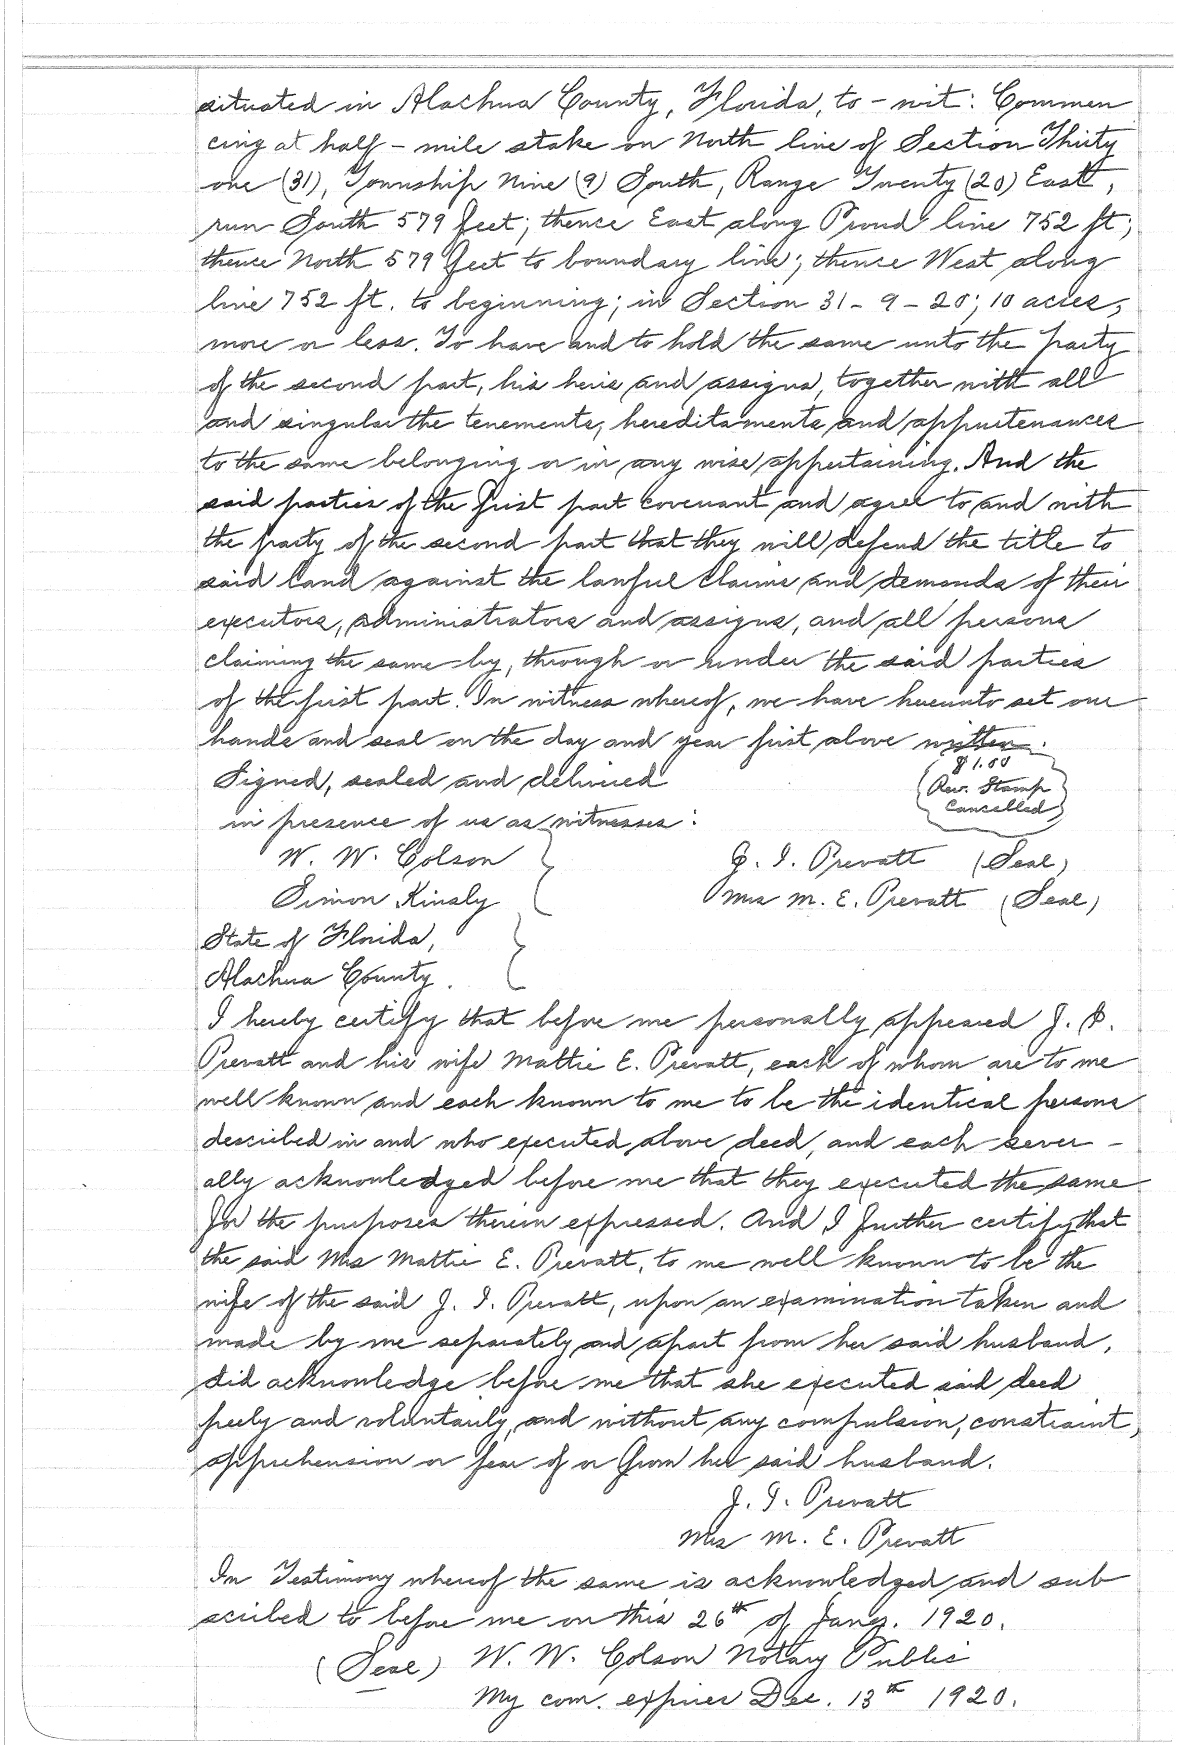 situated in Alachua County, Florida, to-wit: Commen
cing at half-mile stake on North line of Section Thirty
one (31), Township Nine (9) South, Range Twenty (20) East,
run South 579 feet; thence East along Proud line 752 ft;
thence North 579 feet to boundary line; thence West along
line 752 ft. to beginning; in Section 31-9-20; 10 acres,
more or less. To have and to hold the same unto the party
of the second part, his heirs and assigns, together with all
and singular the tenements, hereditaments and appurtenances
to the same belonging or in any wise appertaining. And the
said parties of the first part covenant and agree to and with
the party of the second part that they will defend the title to
said land against the lawful claims and demands of their
executors, administrators and assigns, and all persons
claiming the same by, through or under the said parties
of the first part. In witness whereof, we have hereunto set our
hands and seal on the day and year first above written.
Signed, sealed and delivered
in presence of us as witnesses:
$1.00
Rev. Stamp
Cancelled
W. W. Colson
J. I. Prevatt (Seal)
Simon Kinsly
Mrs M. E. Prevatt (Seal)
State of Florida,
Alachua County.
I hereby certify that before me personally appeared J. I.
Prevatt and his wife Mattie E. Prevatt, each of whom are to me
well known and each known to me to be the identical persons
described in and who executed above deed, and each sever-
ally acknowledged before me that they executed the same
for the purposes therein expressed. And I further certify that
the said Mrs Mattie E. Prevatt, to me well known to be the
wife of the said J. I. Prevatt, upon an examination taken and
made by me separately and apart from her said husband,
did acknowledge before me that she executed said deed
freely and voluntarily, and without any compulsion, constraint,
apprehension or fear of or from her said husband.
J. I. Prevatt
Mrs M. E. Prevatt
In Testimony whereof the same is acknowledged and sub
scribed to before me on this 26th of Jany. 1920.
(Seal) W. W. Colson Notary Public
My com. expires Dec. 13th 1920.